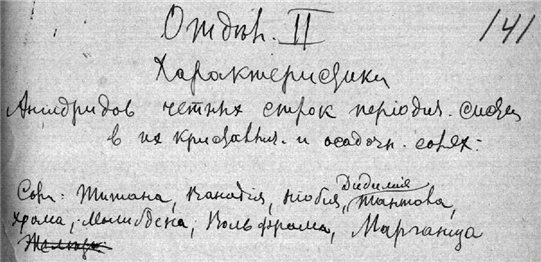 Отдѣл. II 141
Характеристики
Ангидридов четных строк періодич. систем
в их кристаллич. и осадочн. солях:
Соли: Титана, Ванадія, Ніобія, Дидимія Тантала,
Хрома, Молибдена, Вольфрама, Марганца